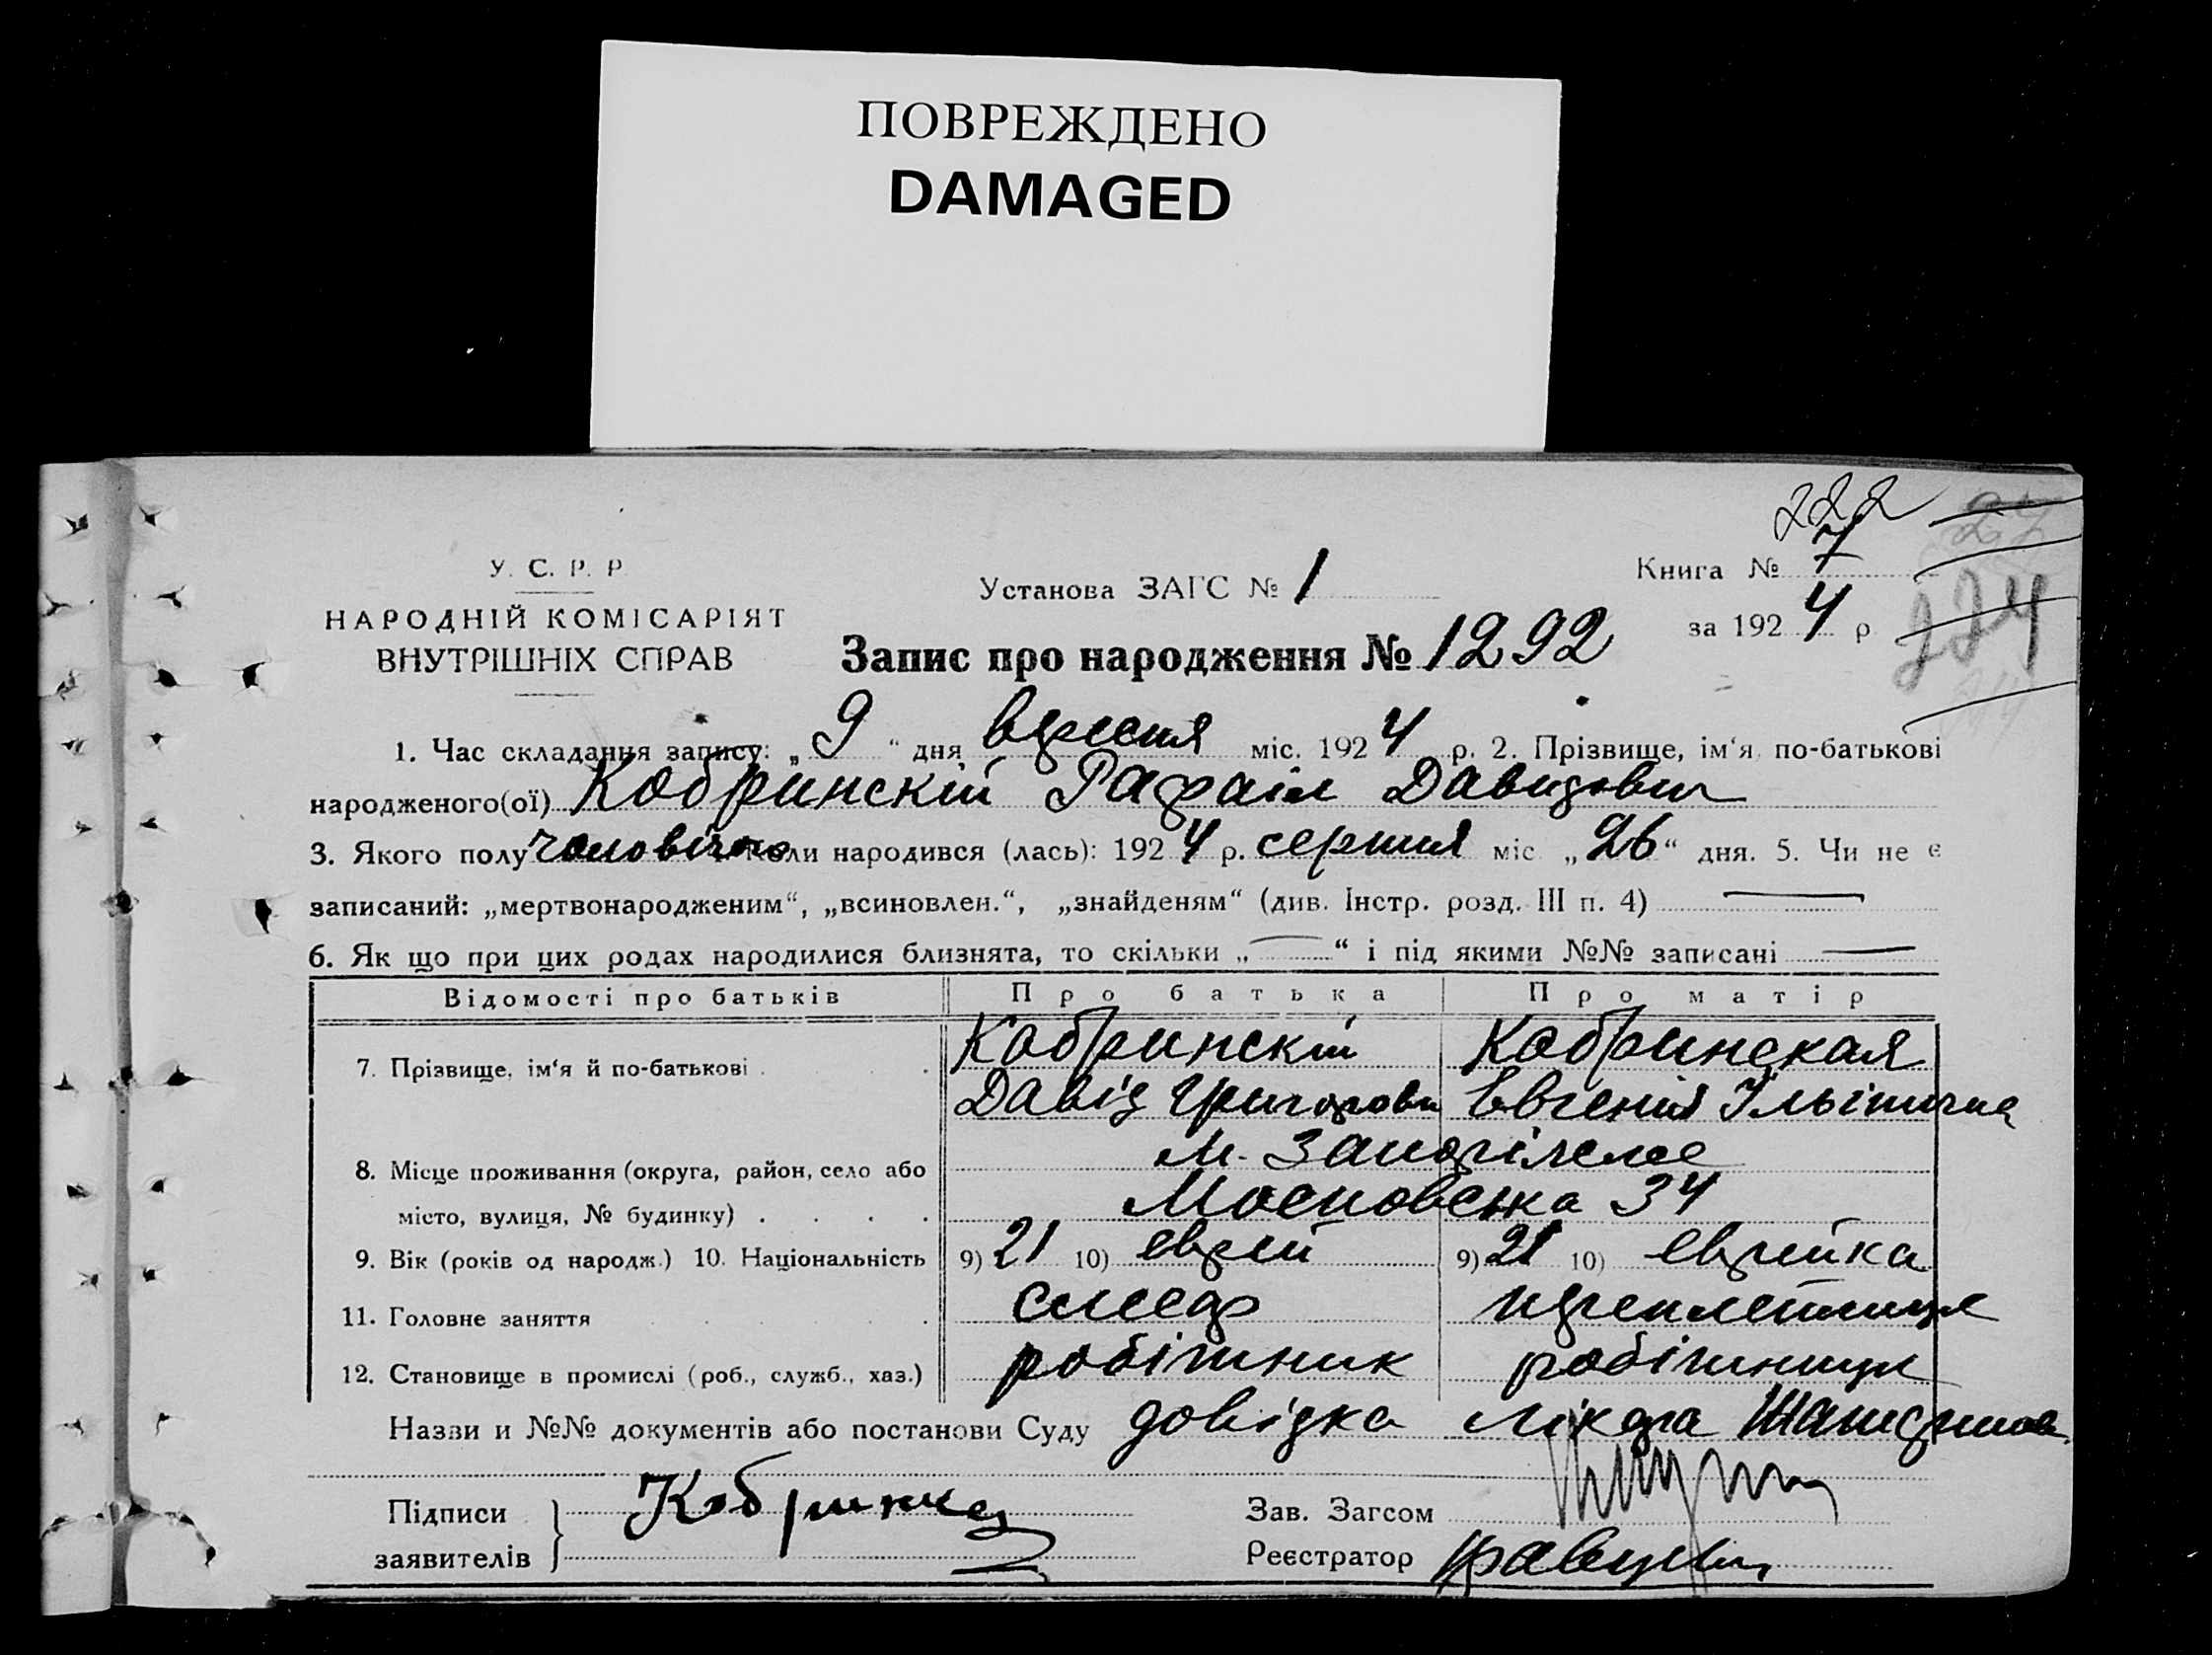 ПОВРЕЖДЕНО
DAMAGED
222
У. С. Р. Р.
НАРОДНІЙ КОМІСАРІЯТ
ВНУТРІШНІХ СПРАВ
Установа ЗАГС № 1
Книга № 7
за 192 4 р
224
Запис про народження № 1292
1. Час складання запису: „ 9 “ дня вресня міс. 192 4 р. 2. Прізвище, ім‘я, по-батькові
народженого(ої) Кобринскій Рафаіл Давидович
3. Якого полу чоловічого Коли народився (лась): 192 4 р. серпня міс. „ 26 “ дня. 5. Чи не є
записаний: „мертвонародженим“, „всиновлен.“, „знайденям“ (див. Інстр. розд. III п. 4)
6. Як що при цих родах народилися близнята, то скільки „ “ і під якими №№ записані
Відомості про батьків Про батька Про матір
7. Прізвище, ім‘я й по-батькові Кобринскій Кобринская
Давід Григорови Евгенія Ільінична
8. Місце проживання (округа, район, село або м.
місто, вулиця, № будинку) Московська 34
9. Вік (років од народж.) 10. Національність 9) 21 10) еврей 9) 21 10) еврейка
11. Головне заняття
12. Становище в промислі (роб., служб., хаз.) робітник робітниця
Назви и №№ документів або постанови Суду довідка лікаря
Підписи
заявителів
Зав. Загсом
Реєстратор